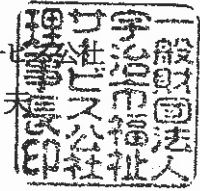 一般財団法人
宇治市福祉
サービス公社
理事長印
公社